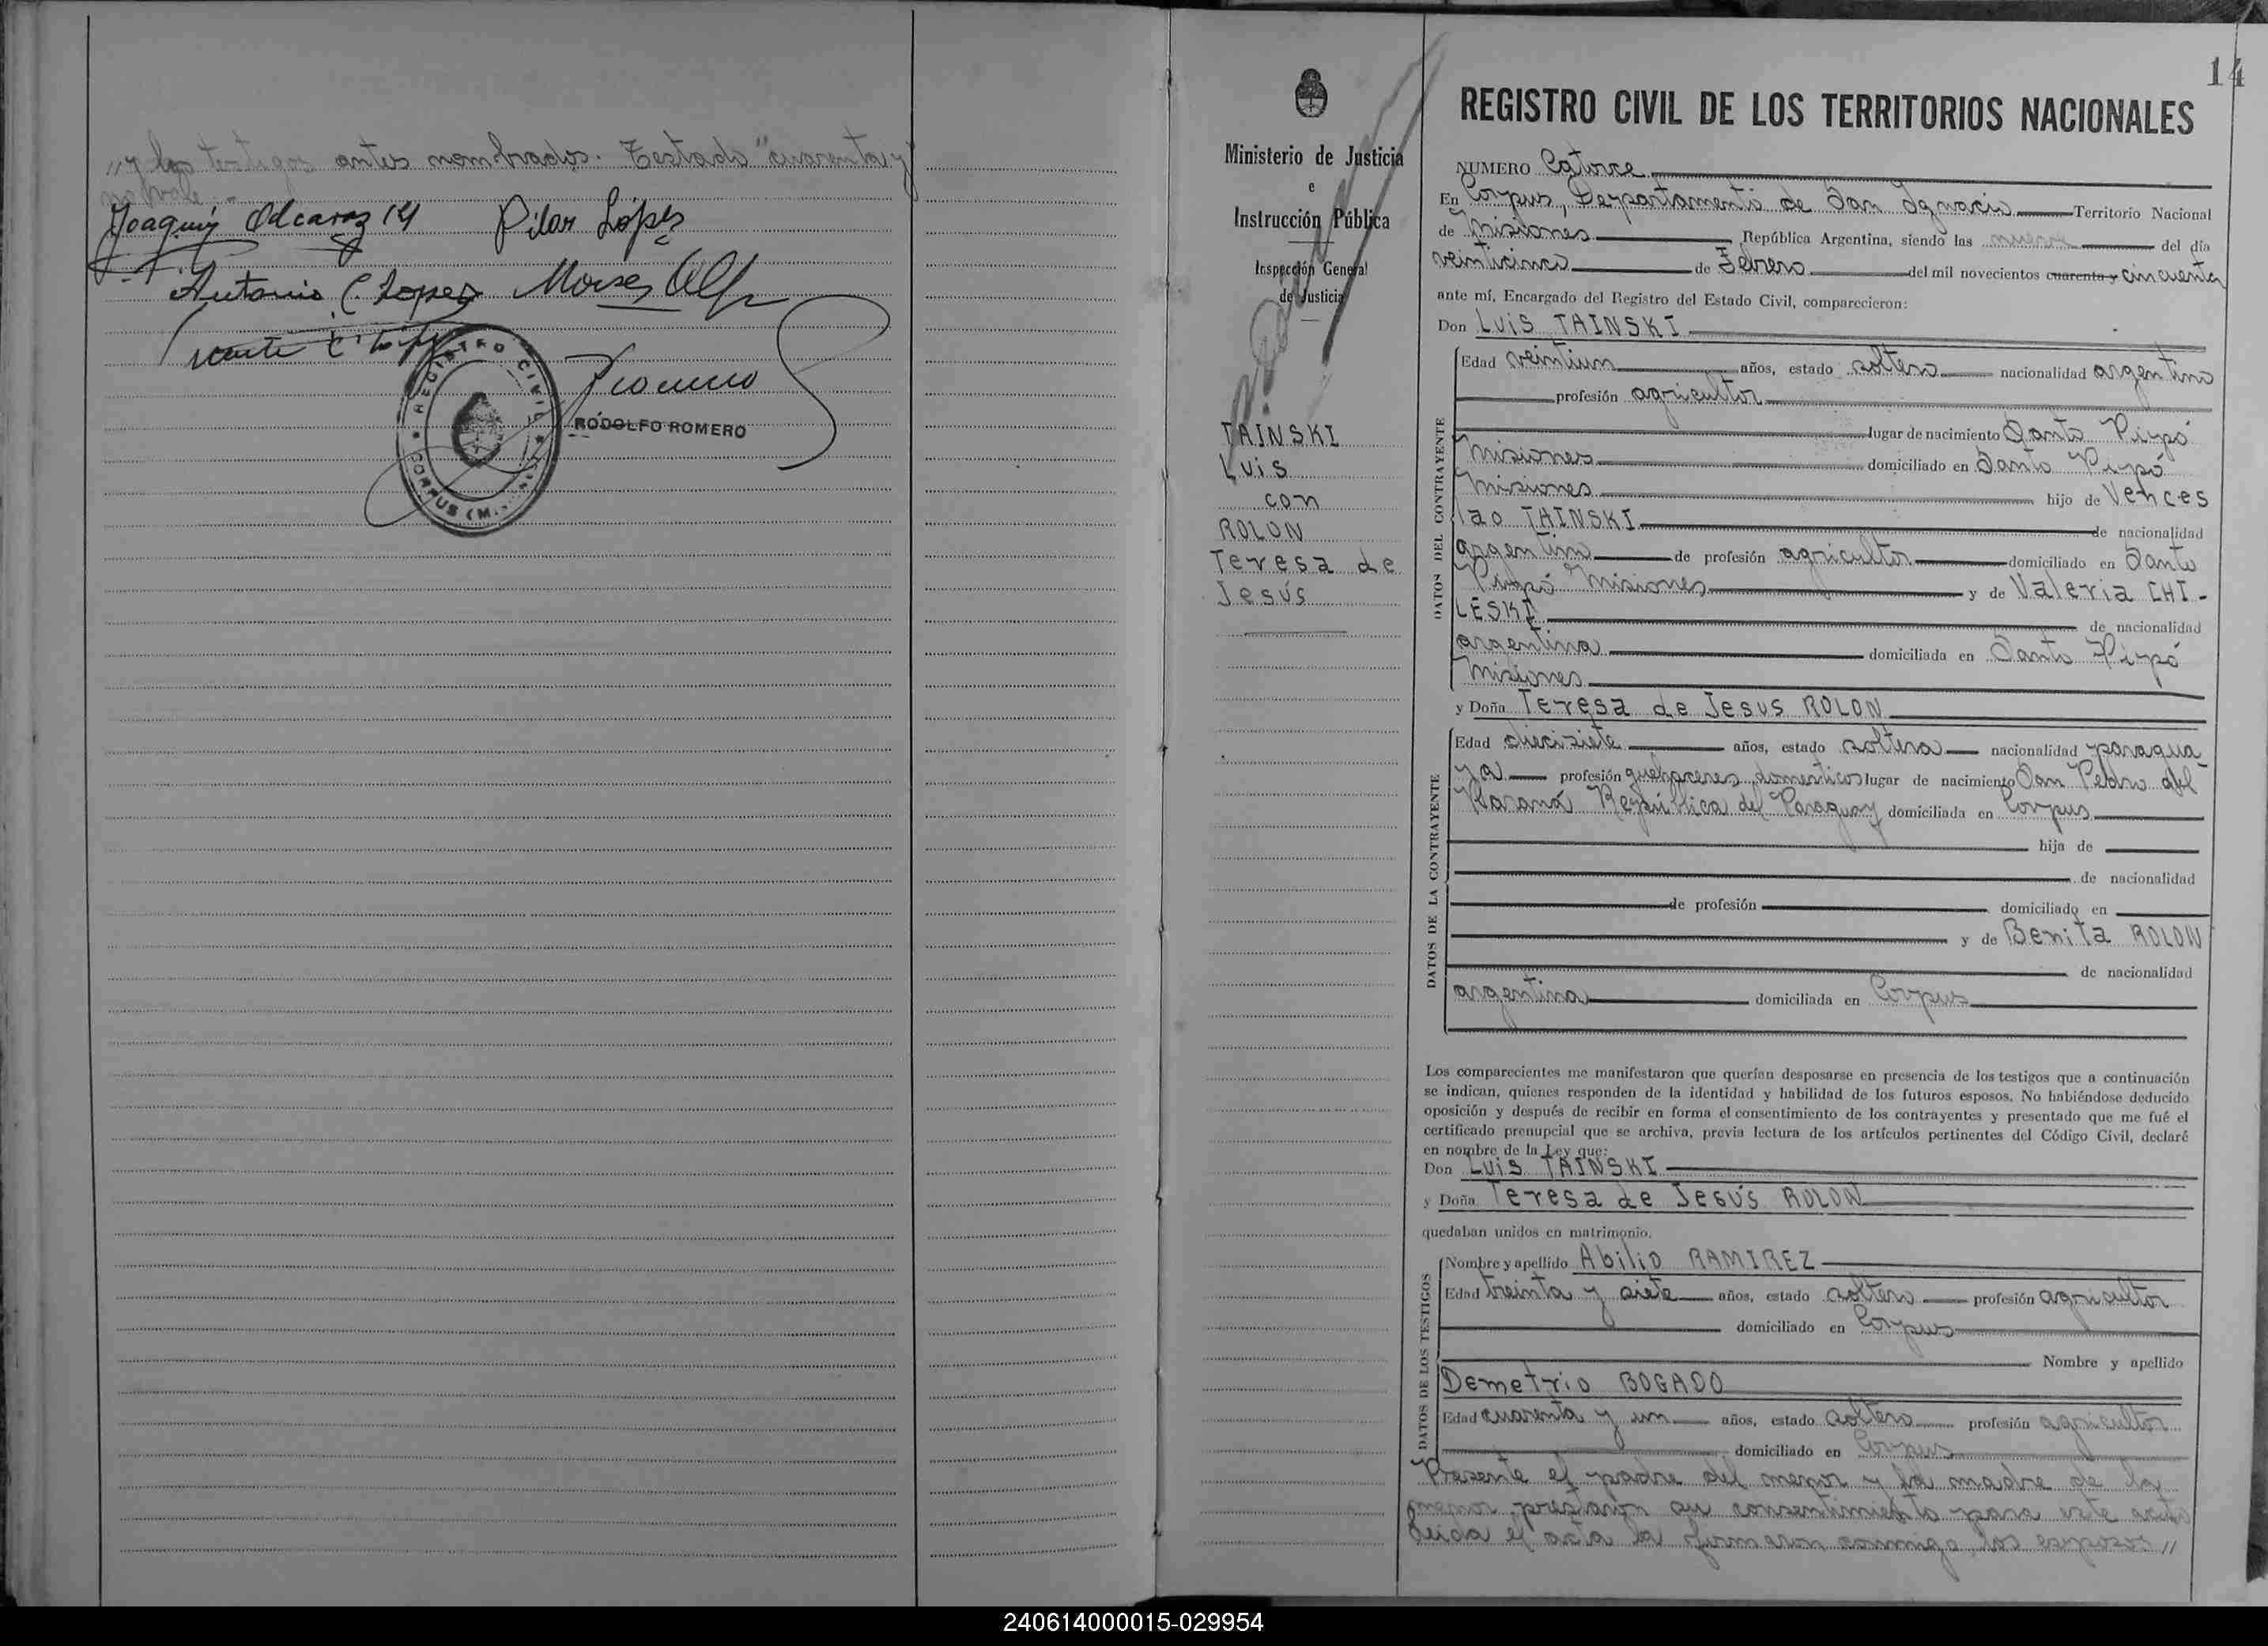 „y los testigos antes nombrados. Testado "cuarenta y"
no vale.-
Joaquín Alcaraz (h) Pilar López
Antonio C. Lopez Moises
REGISTRO CIVIL
CORPUS (M.
RODOLFO ROMERO
14
Ministerio de Justicia
e
Instrucción Pública
Inspección General
de Justicia
TAINSKI
Luis
con
ROLON
Teresa de
Jesús
REGISTRO CIVIL DE LOS TERRITORIOS NACIONALES
NUMERO Catorce
En Corpus, Departamento de San Ignacio Territorio Nacional
de Misiones República Argentina, siendo las nueve del día
veinticinco de Febrero del mil novecientos cuarenta y cincuenta
ante mí, Encargado del Registro del Estado Civil, comparecieron:
Don Luis TAINSKI
DATOS DEL CONTRAYENTE
Edad veintiun años, estado soltero nacionalidad argentino
profesión agricultor
lugar de nacimiento Santo Pipó
Misiones domiciliado en Santo Pipó
Misiones hijo de Vences
lao TAINSKI de nacionalidad
argentino de profesión agricultor domiciliado en Santo
Pipó Misiones y de Valeria CHI-
LESKI de nacionalidad
argentina domiciliada en Santo Pipó
Misiones
y Doña Teresa de Jesus ROLON
DATOS DE LA CONTRAYENTE
Edad diecisiete años, estado soltera nacionalidad paragua-
ya profesión quehaceres domesticos lugar de nacimiento San Pedro del
Paraná República del Paraguay domiciliada en Corpus
hija de
de nacionalidad
de profesión domiciliado en
y de Benita ROLON
de nacionalidad
argentina domiciliada en Corpus
Los comparecientes me manifestaron que querían desposarse en presencia de los testigos que a continuación
se indican, quienes responden de la identidad y habilidad de los futuros esposos. No habiéndose deducido
oposición y después de recibir en forma el consentimiento de los contrayentes y presentado que me fué el
certificado prenupcial que se archiva, previa lectura de los artículos pertinentes del Código Civil, declaré
en nombre de la Ley que:
Don Luis TAINSKI
y Doña Teresa de Jesús ROLON
quedaban unidos en matrimonio.
DATOS DE LOS TESTIGOS
Nombre y apellido Abilio RAMIREZ
Edad treinta y siete años, estado soltero profesión agricultor
domiciliado en Corpus
Nombre y apellido
Demetrio BOGADO
Edad cuarenta y un años, estado soltero profesión agricultor
domiciliado en Corpus
Presente el padre del menor y la madre de la
menor prestaron su consentimiento para este acto
Leida el acta la firmaron conmigo, los esposos „
240614000015-029954